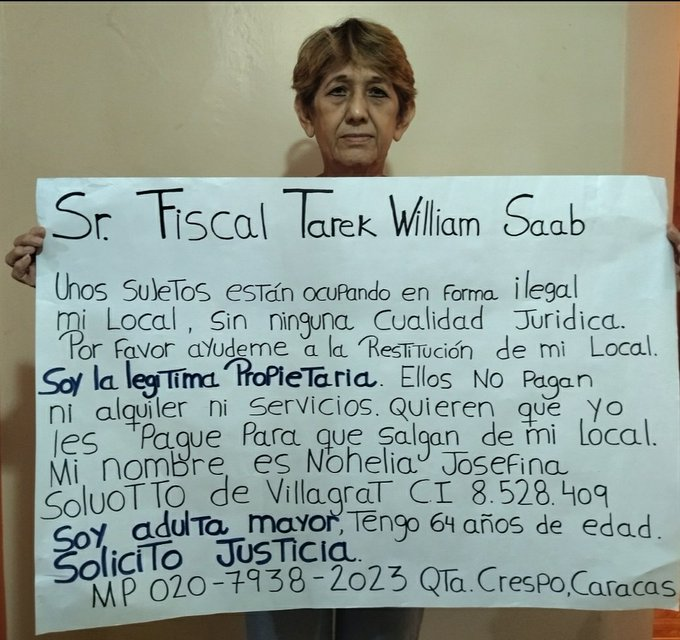 Sr. Fiscal Tarek William Saab
Unos sujetos están ocupando en forma ilegal
mi Local, sin ninguna Cualidad Juridica.
Por favor ayudeme a la Restitución de mi Local.
Soy la legitima Propietaria. Ellos No Pagan
ni alquiler ni servicios. Quieren que yo
les Pague Para que salgan de mi local.
Mi nombre es Nohelia Josefina
Soluotto de Villagrat CI 8.528.409
Soy adulta mayor, Tengo 64 años de edad.
Solicito Justicia.
MP 020-7938-2023 QTa. Crespo, Caracas